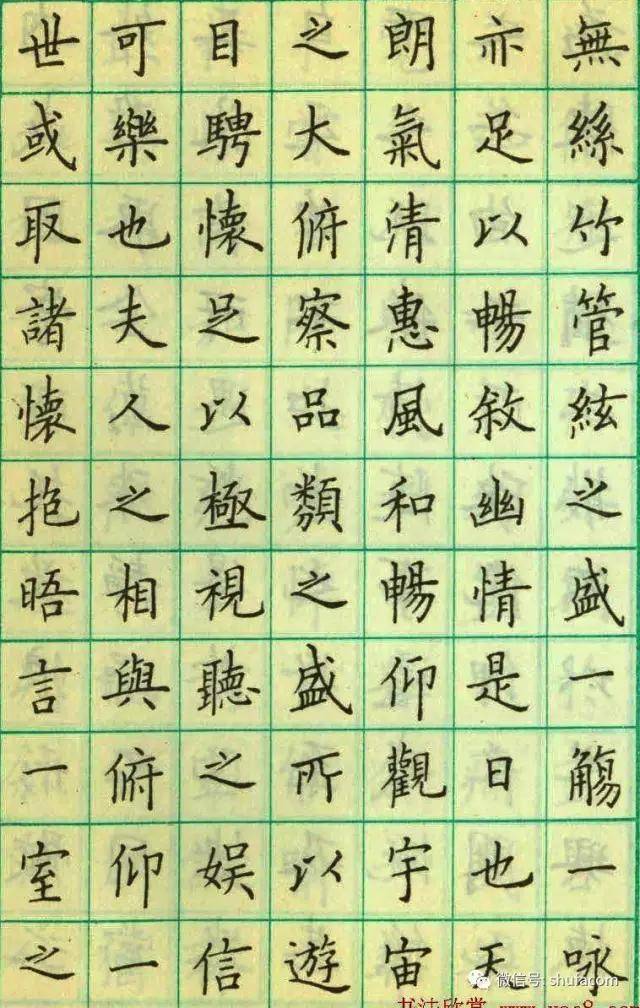 無絲竹管絃之盛一觴一咏
亦足以暢敘幽情是日也天
朗氣清惠風和暢仰觀宇宙
之大俯察品類之盛所以遊
目騁懷足以極視聽之娛信
可樂也夫人之相與俯仰一
世或取諸懷抱晤言一室之
微信号: shufacom